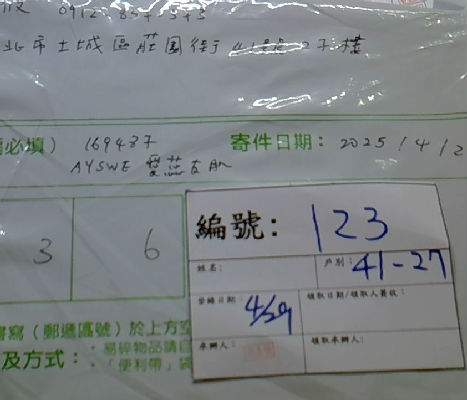 北市土城區莊園街41號27樓
必填) 169437
寄件日期: 2025/4/2
AYSWE
3 6
編號: 123
姓名:
戶別: 41-27
登錄日期: 4/29
領取日期/領取人簽收:
承辦人:
領取承辦人:
書寫(郵遞區號)於上方空
及方式:
・易碎物品請自
・「便利帶」袋